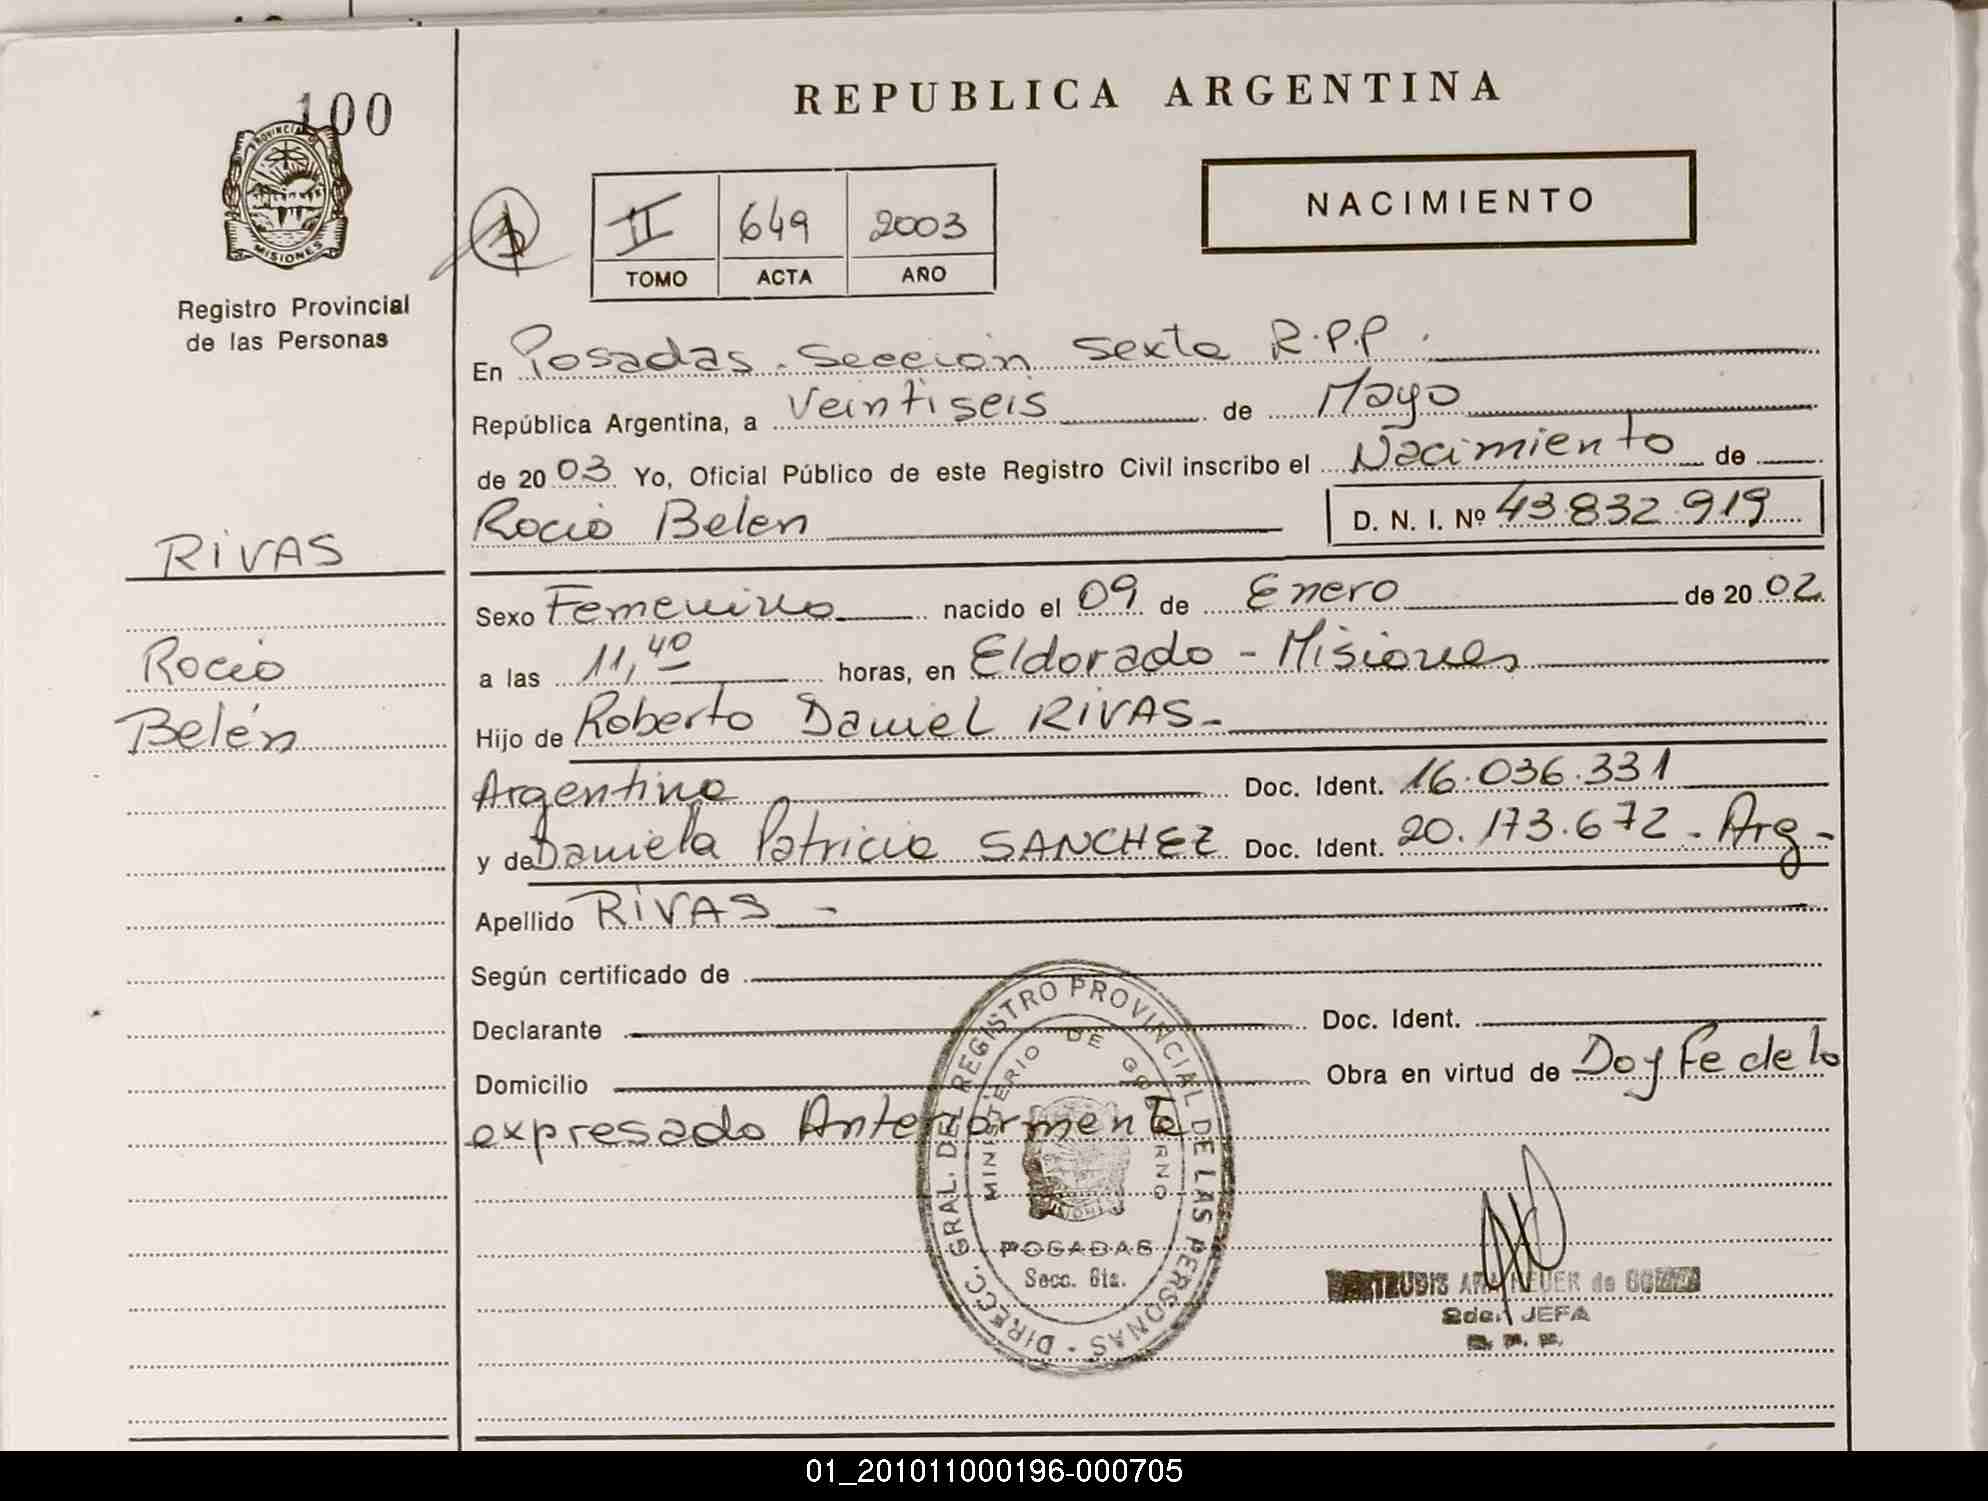 100
PROVINCIA
MISIONES
Registro Provincial
de las Personas
REPUBLICA ARGENTINA
NACIMIENTO
II 649 2003
TOMO ACTA AÑO
En Posadas. Sección Sexta R.P.P.
República Argentina, a Veintiseis de Mayo
de 20 03 Yo, Oficial Público de este Registro Civil inscribo el Nacimiento de
Rocio Belen D. N. I. Nº 43.832.919
RIVAS
Rocio
Belén
Sexo Femenino nacido el 09 de Enero de 20 02
a las 11,40 horas, en Eldorado - Misiones
Hijo de Roberto Daniel RIVAS -
Argentino Doc. Ident. 16.036.331
y de Daniela Patricia SANCHEZ Doc. Ident. 20.173.672 - Arg -
Apellido RIVAS -
Según certificado de
Declarante Doc. Ident.
Domicilio Obra en virtud de Doy Fe de lo
expresado Anteriormente
DIRECC. GRAL. DEL REGISTRO PROVINCIAL DE LAS PERSONAS -
MINISTERIO DE GOBIERNO
POSADAS
Secc. 6ta.
de
JEFA
01_201011000196-000705